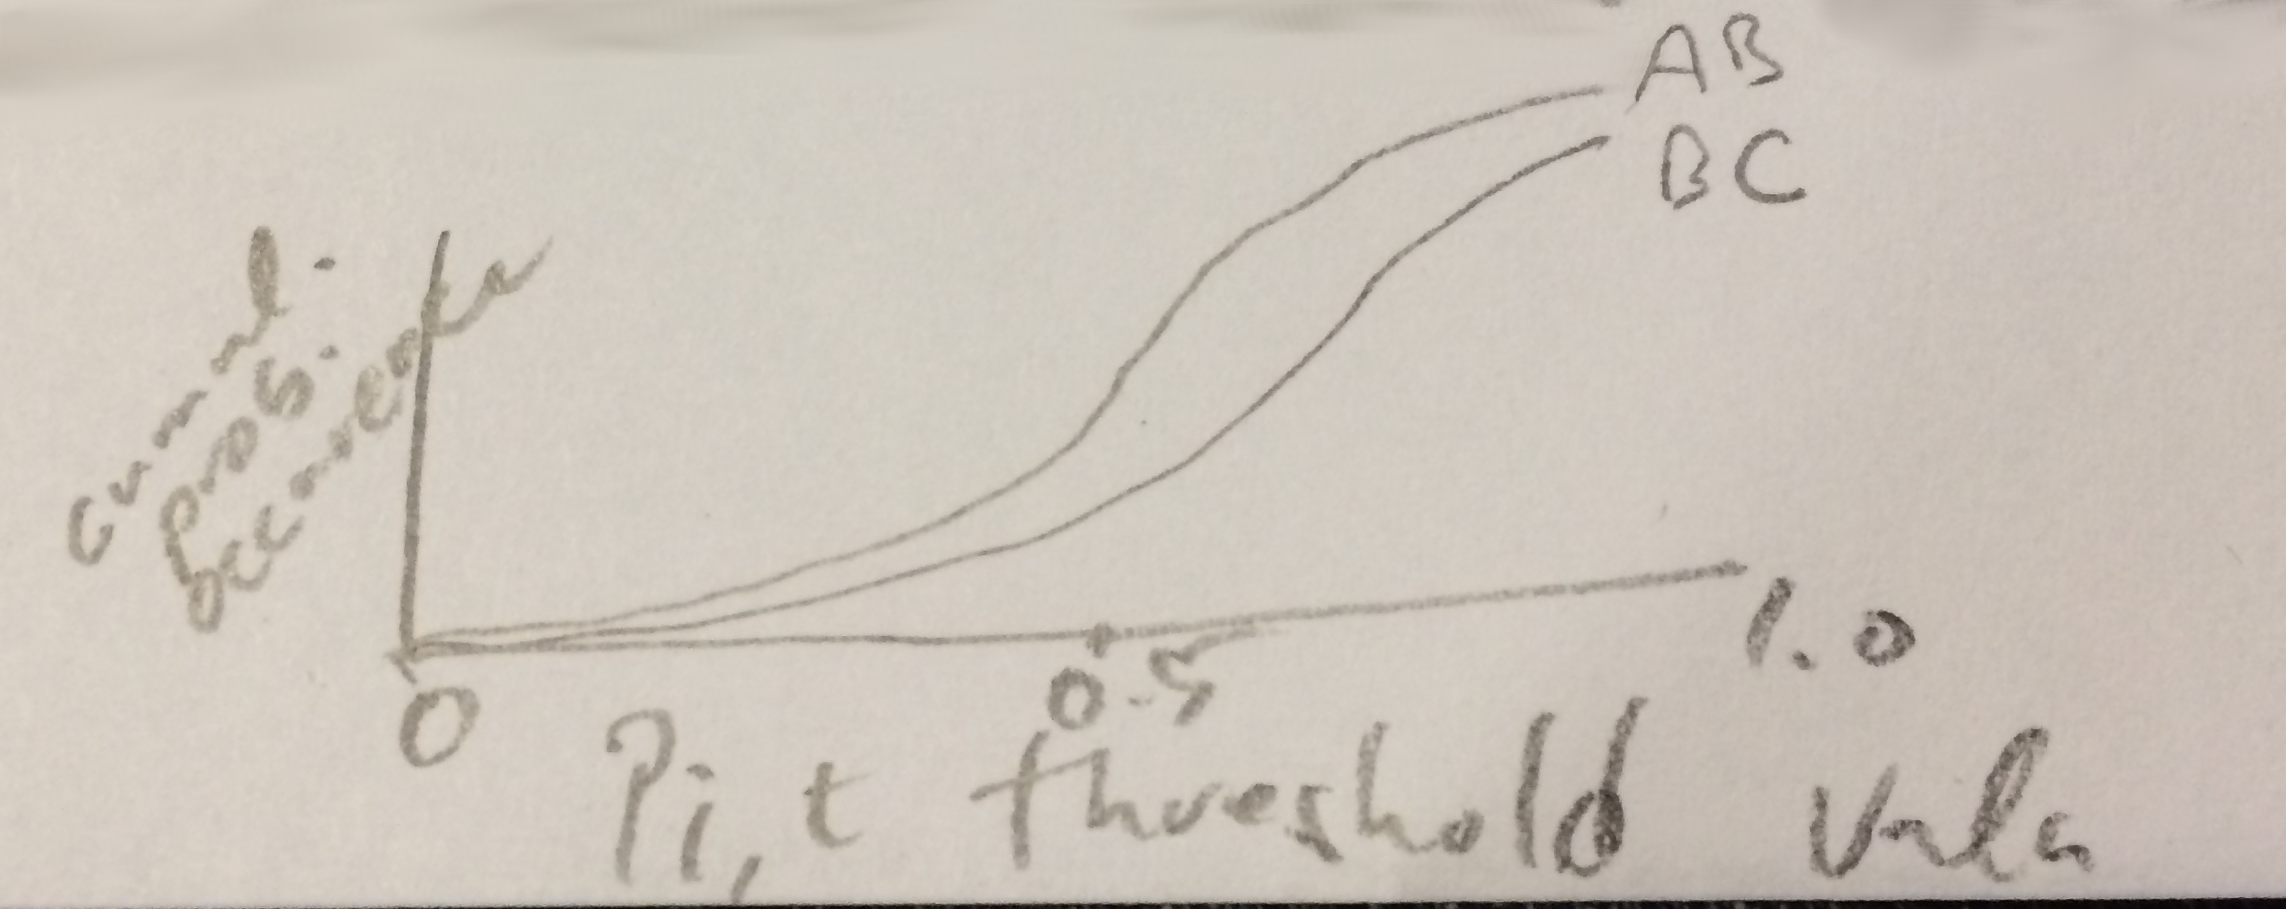 AB
BC
cumul.
prob.
occurence
0
0.5
1.0
Pi,t threshold